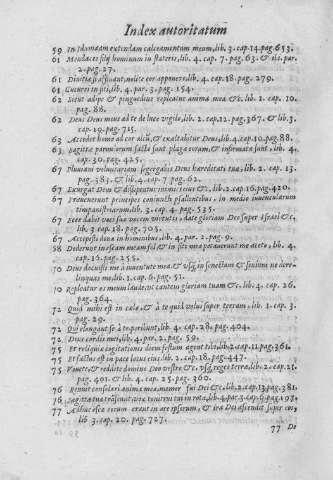 Index autoritatum
59 In Idumeam extendam calceamentum meum, lib. 3. cap. 14. pag. 653.
61 Mendaces filij hominum in stateris, lib. 4. cap. 7. pag. 63. & ibi. par.
2. pag. 27.
61 Diuitiæ si affluant, nolite cor apponere lib. 4. cap. 18. pag. 279.
61 lib. 4. par. 3. pag. 154.
62 Sicut adipe & pinguedine repleatur anima mea &c. lib. 2. cap. 10.
pag. 88.
62 Deus Deus meus ad te de luce vigilo lib. 2. cap. 12. pag. 367. & lib. 3.
cap. 19. pag. 715.
63 Accedet homo ad cor altū, & exaltabitur Deus, lib. 4. cap. 10. pag. 88.
63 Sagittæ paruulorum factæ sunt plagæ eorum, & infirmatæ sunt lib. 4.
cap. 30. pag. 425.
67 Pluuiam voluntariam segregabis Deus hæreditati tuæ, lib. 2. cap. 13.
pag. 383. & lib. 4. cap. 7 pag. 62.
67 Exurgat Deus & dissipentur inimici eius &c, lib. 2. cap. 16. pag. 420.
67 Præuenerunt principes coniuncti psallentibus, in medio iuuencularum
timpanistriarum, lib. 3. cap. 4. pag. 535.
67 Ecce dabit voci suæ vocem virtutis, date gloriam Deo super Israel &c,
lib. 3. cap. 18. pag. 705.
67 Accepisti dona in hominibus, lib. 4. par. 2. pag. 9.
58 Dederunt in escam meam fel, & in siti mea potauerunt me aceto, lib. 4.
cap. 16. pag. 255.
70 Deus docuisti me à iuuentute mea & vsq; in senectam & senium ne dere-
linquas me, lib. 2. cap. 6. pag. 51.
70 Repleatur os meum laude, vt cantem gloriam tuam &c, lib. 4. cap. 26.
pag. 364.
72 Quid mihi est in cælo, & à te quid volui super terram, lib. 1. cap. 3.
pag. 29.
72 Qui elongant se à te peribunt, lib. 4. cap. 28. pag. 404.
72 Deus cordis mei, lib. 4. par. 2. pag. 59.
75 Et reliquiæ cogitationis diem festum agent tibi, lib. 2. cap. 11. pag. 361.
75 Et factus est in pace locus eius, lib. 2. cap. 18. pag. 447.
75 Vouete, & reddite domino Deo vestro &c. lib. 2. cap. 21.
pag. 401. & lib. 4. cap. 25. pag. 360.
76 Renuit consolari anima mea, memor fui Dei &c, lib. 2. cap. 13. pag. 381.
76 Sagittæ tuæ trāseunt, vox tonitrui tui in rota, lib. 4. par. 3. cap. 6. pag. 197.
77 Adhuc escæ eorum erant in ore ipsorum, & ira Dei ascendit super eos,
lib 3. cap. 20. pag. 727.
77 De